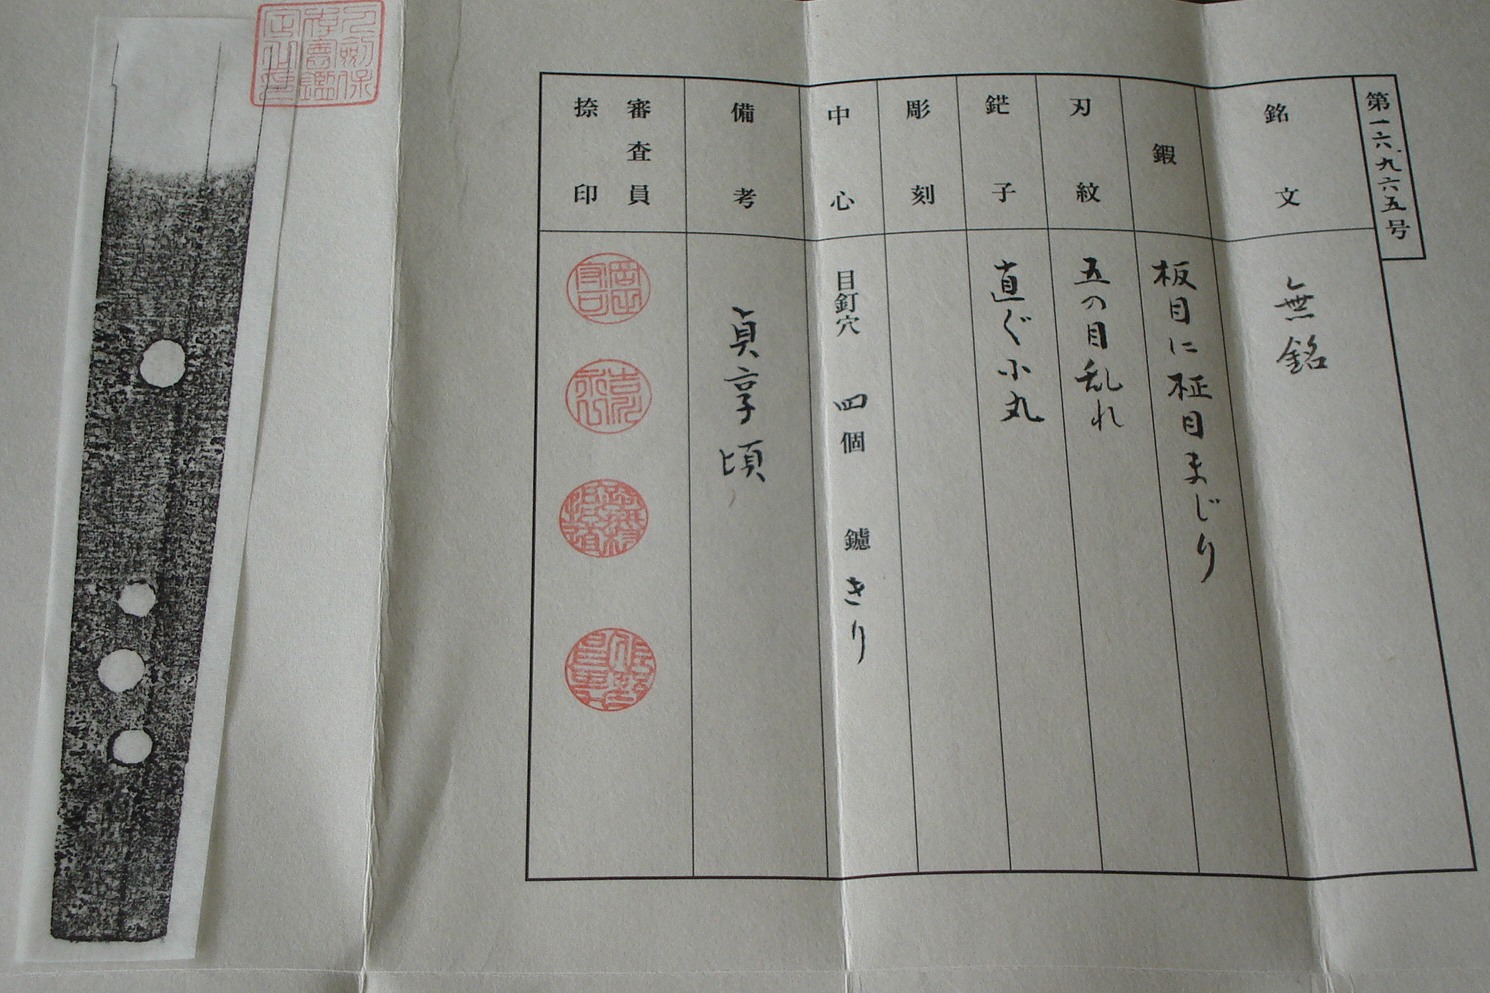 第一六九六五号
銘文
無銘
鍜
板目に柾目まじり
刃紋
五の目乱れ
鋩子
直ぐ小丸
彫刻
中心
目釘穴 四個 鑢 きり
備考
貞享頃
審査員
捺印